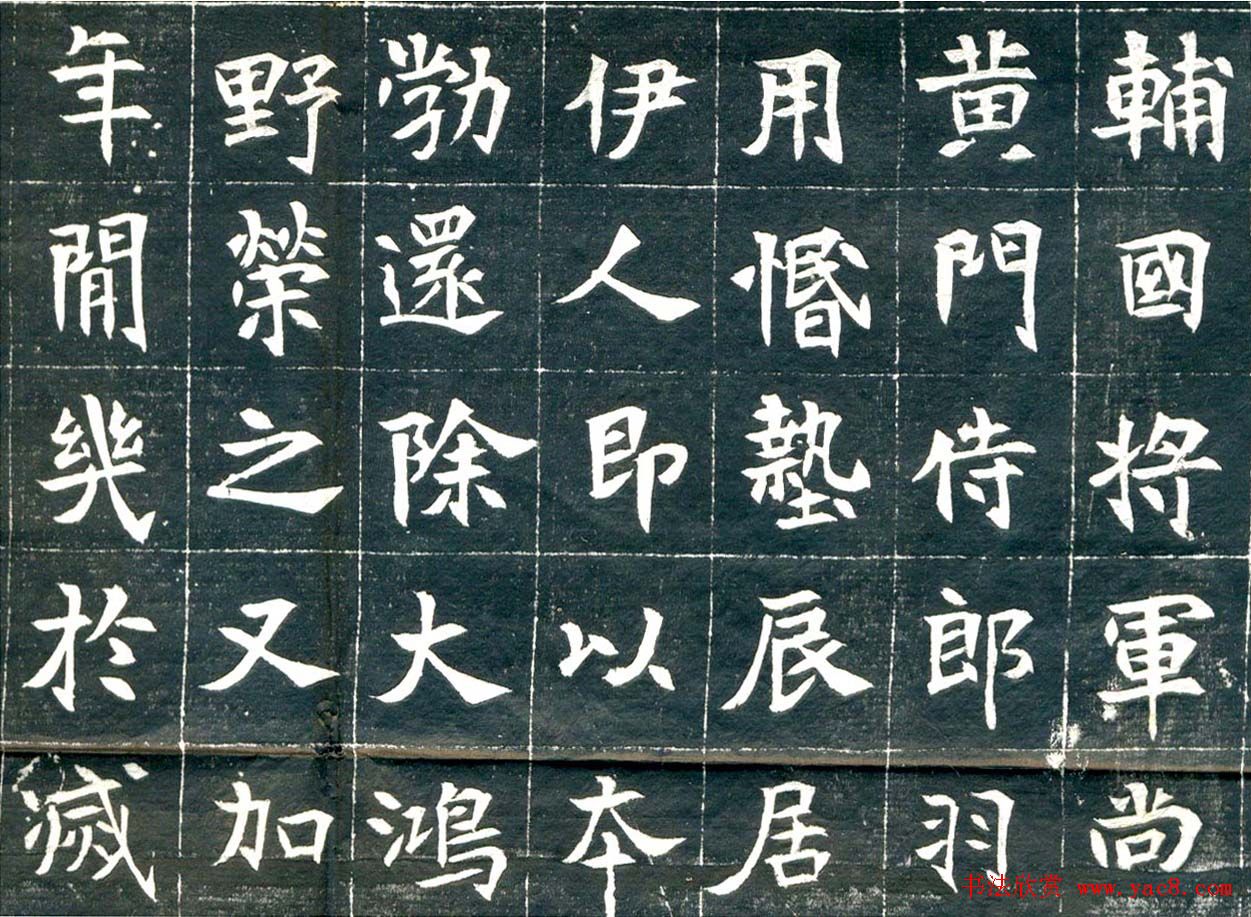 輔國將軍尚
黄門侍郎羽
用惽墊辰居
伊人即以夲
勃還除大鴻
野榮之又加
年閒幾於滅
书法欣赏 www.yac8.com